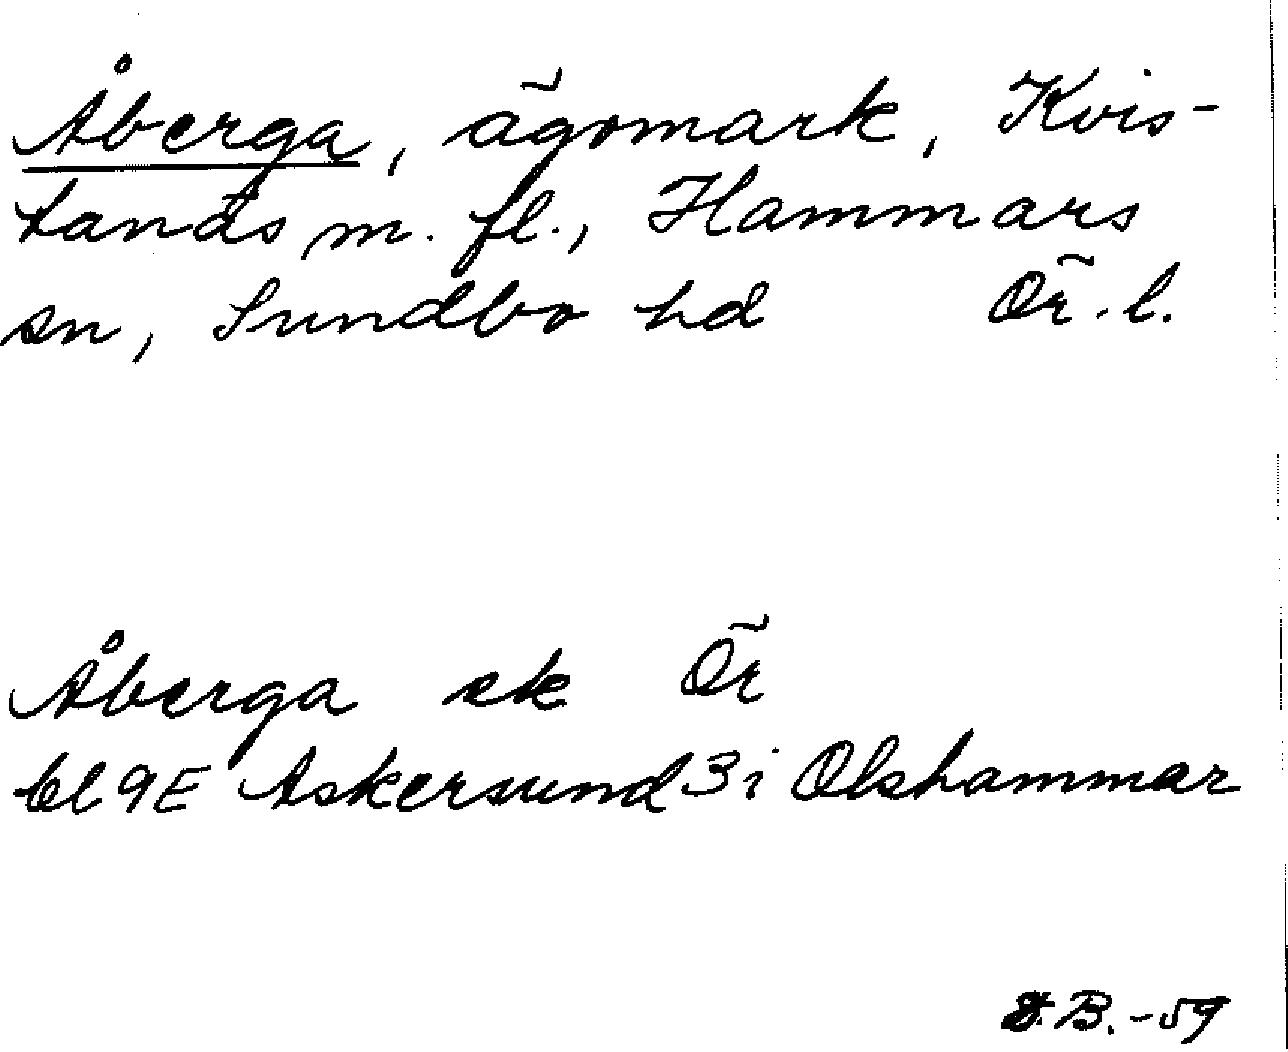 Åberga, ägomark, Kvis-
tanäs m. fl., Hammars
sn, Sundbo hd Ör. l.
Åberga ek Ör
bl 9E Askersund 3i Olshammar
B. -59